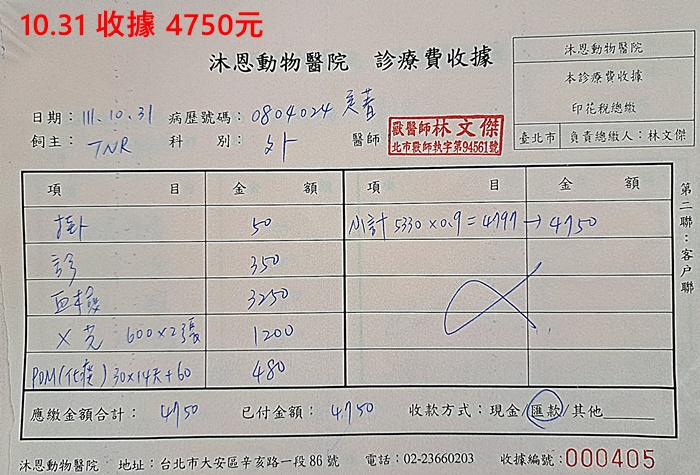 10.31 收據 4750元
沐恩動物醫院 診療費收據
沐恩動物醫院
本診療費收據
印花稅總繳
臺北市 負責總繳人：林文傑
日期： 111.10.31 病歷號碼： 0804024
飼主： TNR 科 別： 外 醫師
獸醫師林文傑
北市獸師執字第94561號
項 目 金 額 項 目 金 額
掛 50 小計 5330 x 0.9 = 4797 → 4750
診 350
血檢 3250
X光 600 x 2張 1200
30 x 14天 + 60 480
應繳金額合計： 4750 已付金額： 4750 收款方式：現金/匯款/其他
第二聯：客戶聯
沐恩動物醫院 地址：台北市大安區辛亥路一段86號 電話：02-23660203 收據編號：000405